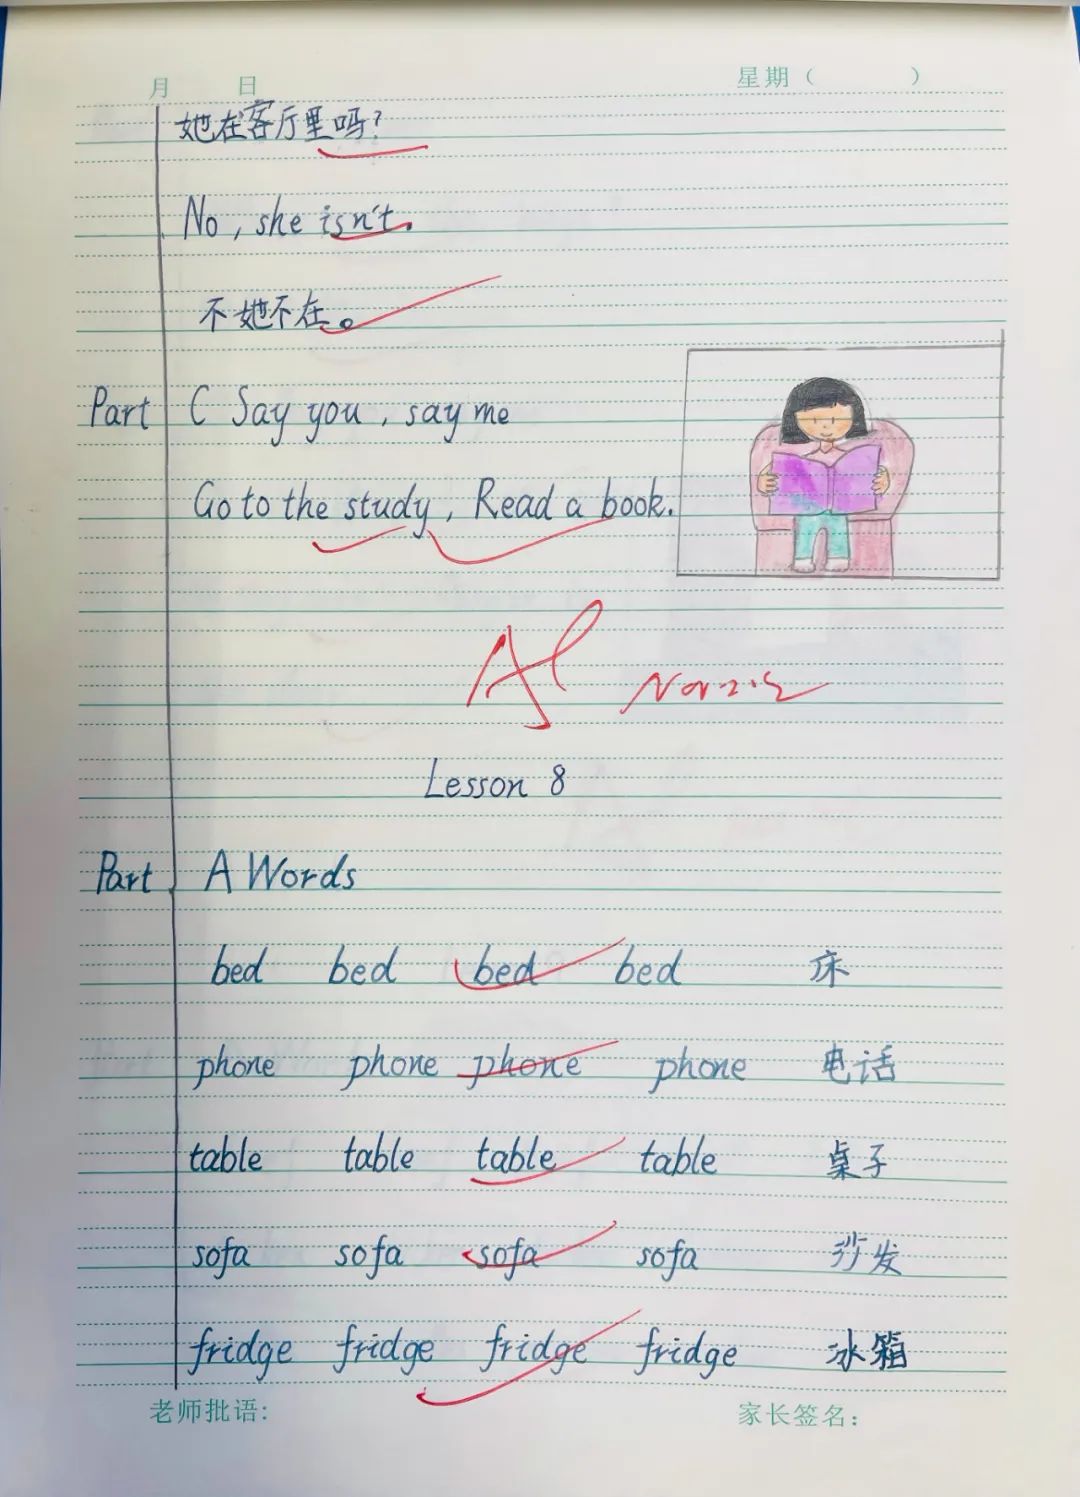 月 日 星期（ ）
她在客厅里吗？
No, she isn't.
不她不在。
Part C Say you, say me
Go to the study, Read a book.
Lesson 8
Part A Words
bed bed bed bed 床
phone phone phone phone 电话
table table table table 桌子
sofa sofa sofa sofa 沙发
fridge fridge fridge fridge 冰箱
老师批语: 家长签名: